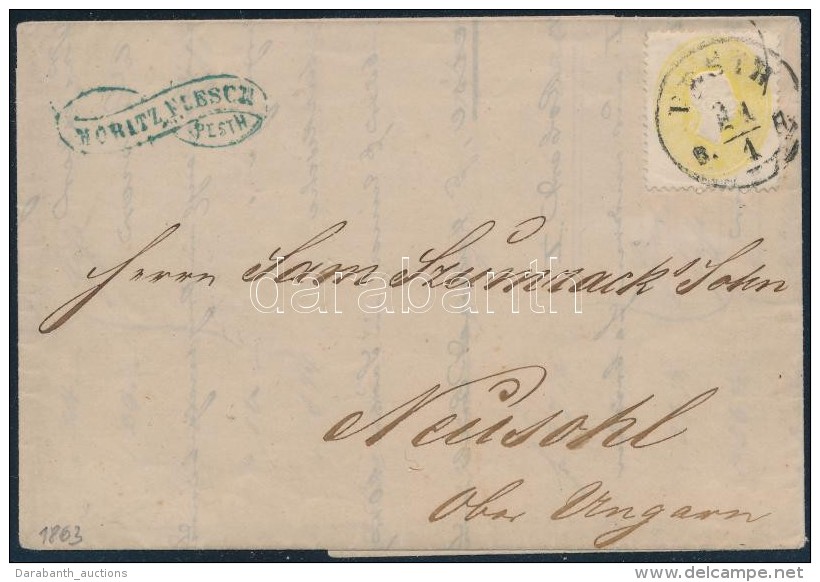 MORITZ FLESCH
PESTH
PESTH
21
1
Herrn Sam Szumrack's Sohn
darabanth
Neusohl
Ober Ungarn
1863
Darabanth_auctions
www.delcampe.net